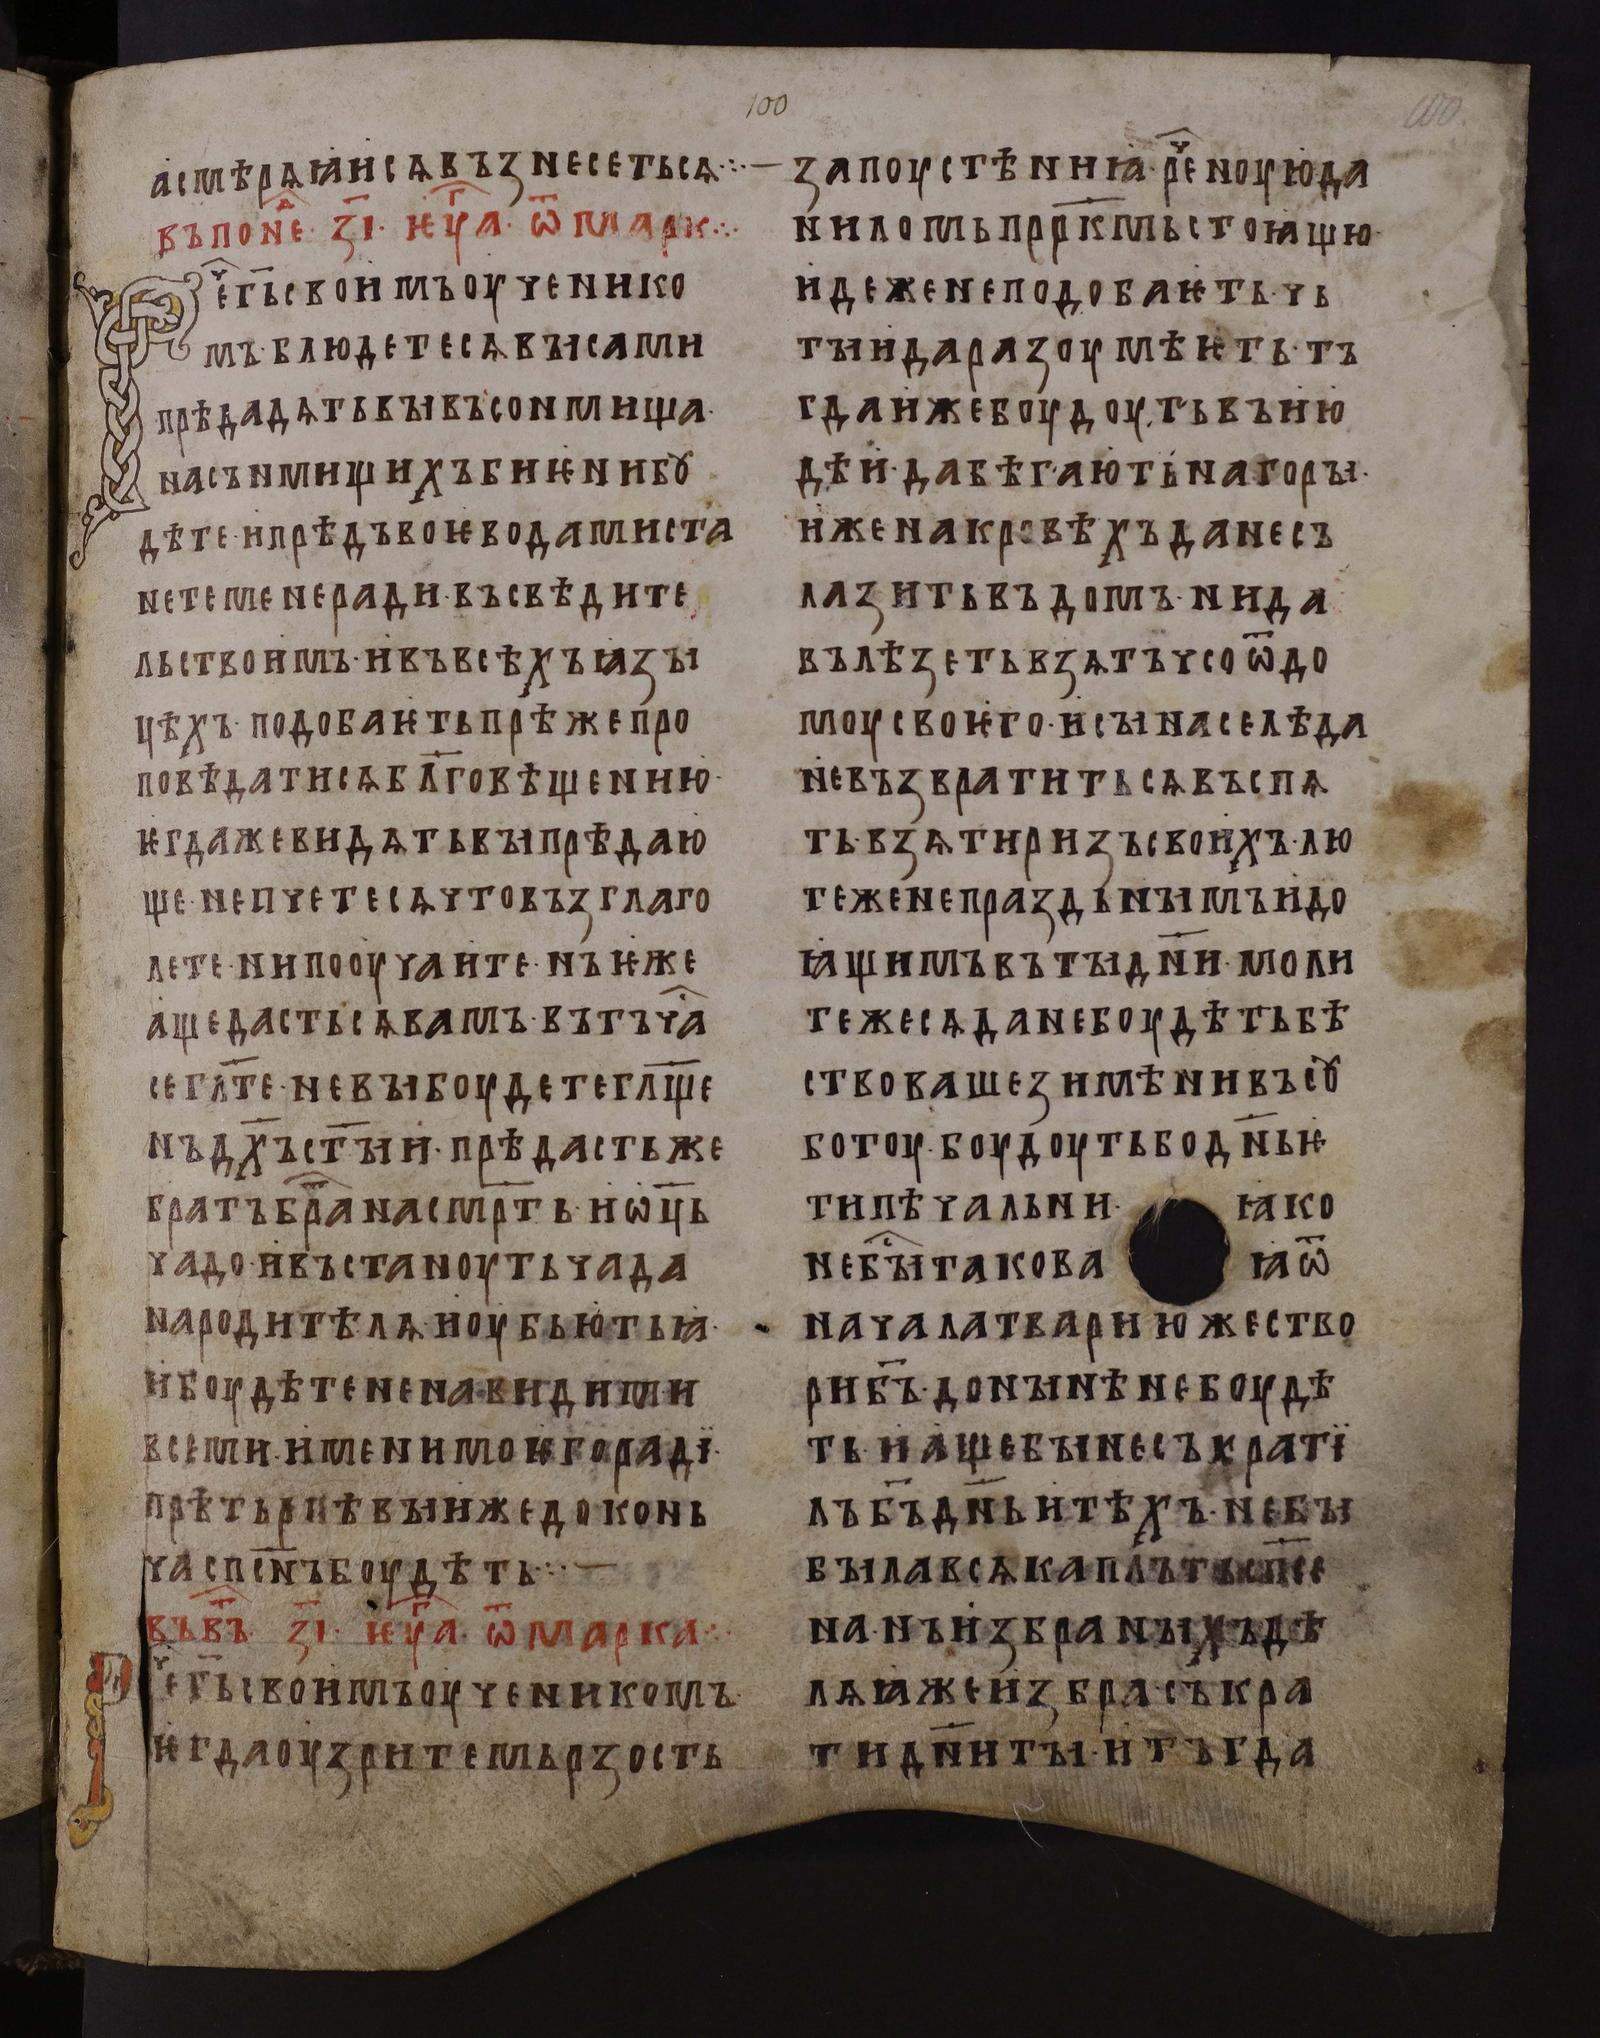 100
100
асмѣрѧꙗисѧвъзнесетьсѧ⁘—
въпонⷣе҇· з҃і· ѥуⷢ҇а· ѿмарк⁘
Рⷱ҇ег҃ьсвоимъоученико
мъ·блюдетесѧвꙑсами
прѣдадѧтьвꙑвъсонмища·
насънмищихъбиѥнибꙋ
дѣте·ипрѣдъвоѥводамиста
нетеменеради·въсвѣдите
льствоимъ·ивъвсѣхъꙗзꙑ
цѣхъ·подобаѥтьпрѣжепро
повѣдатисѧбл҃говѣщению·
ѥгдажевидѧтьвꙑпрѣдаю
ще·непчетесѧчтовъзглаго
лете·нипооучаите·нъѥже
ащедастьсѧвамъ·вътъчⷭ҇а
сегл҃те·невꙑбоудетегл҃ще
нъдх҃ъст҃ꙑи·прѣдастьже
братъбрⷮ҇анасмр҃ть·иѡц҃ь
чадо·ивъстаноутьчада
народитѣлѧ·иоубьютьꙗ·
ибоудѣтененавидими
всеми·именимоѥгорадї·
прѣтьрпѣвꙑижедоконь
часпсн҃ъбоудѣть⁘—
въвⷮ҇ъ· з҃і· ѥуⷢ҇а· ѿмарка⁘
Рⷱ҇ег҃ьсвоимъоученикомъ·
ѥгдаоузритемьрзость
запоустѣниꙗ·рⷱ҇еноуюда
ниломьпрр҃кмьстоꙗщю·
идеженеподобаѥть·чь
тꙑидаразоумѣѥть·тъ
гдаижебоудоутьвъию
дѣи·дабѣгаютьнагорꙑ·
иженакровѣхъданесъ
лазитьвъдомъ·нида
вълѣзетьвзѧтъчсоѿдо
моусвоѥго·исꙑнаселѣда
невъзвратитьсѧвъспѧ
ть·взѧтиризъсвоихъ·лю
теженепраздьнꙑмъидо
ꙗщимъвътꙑдн҃и·моли
тежесѧданебоудѣтьбѣ
ствовашезимѣнивъсꙋ
ботоу·боудоутьбодн҃ьѥ
типѣчальни· ꙗко
небⷭ҇ꙑтакова ꙗѿ
началатвариюжество
риб҃ъ·донꙑнѣнебоудѣ
ть·иащебꙑнесъкратї
лъб҃ъдн҃ьитѣхъ·небꙑ
бꙑлавсѧкаплътьсп҃се
на·нъизбранꙑхъдѣ
лѧꙗжеизбра·съкра
тидн҃итꙑ·итъгда